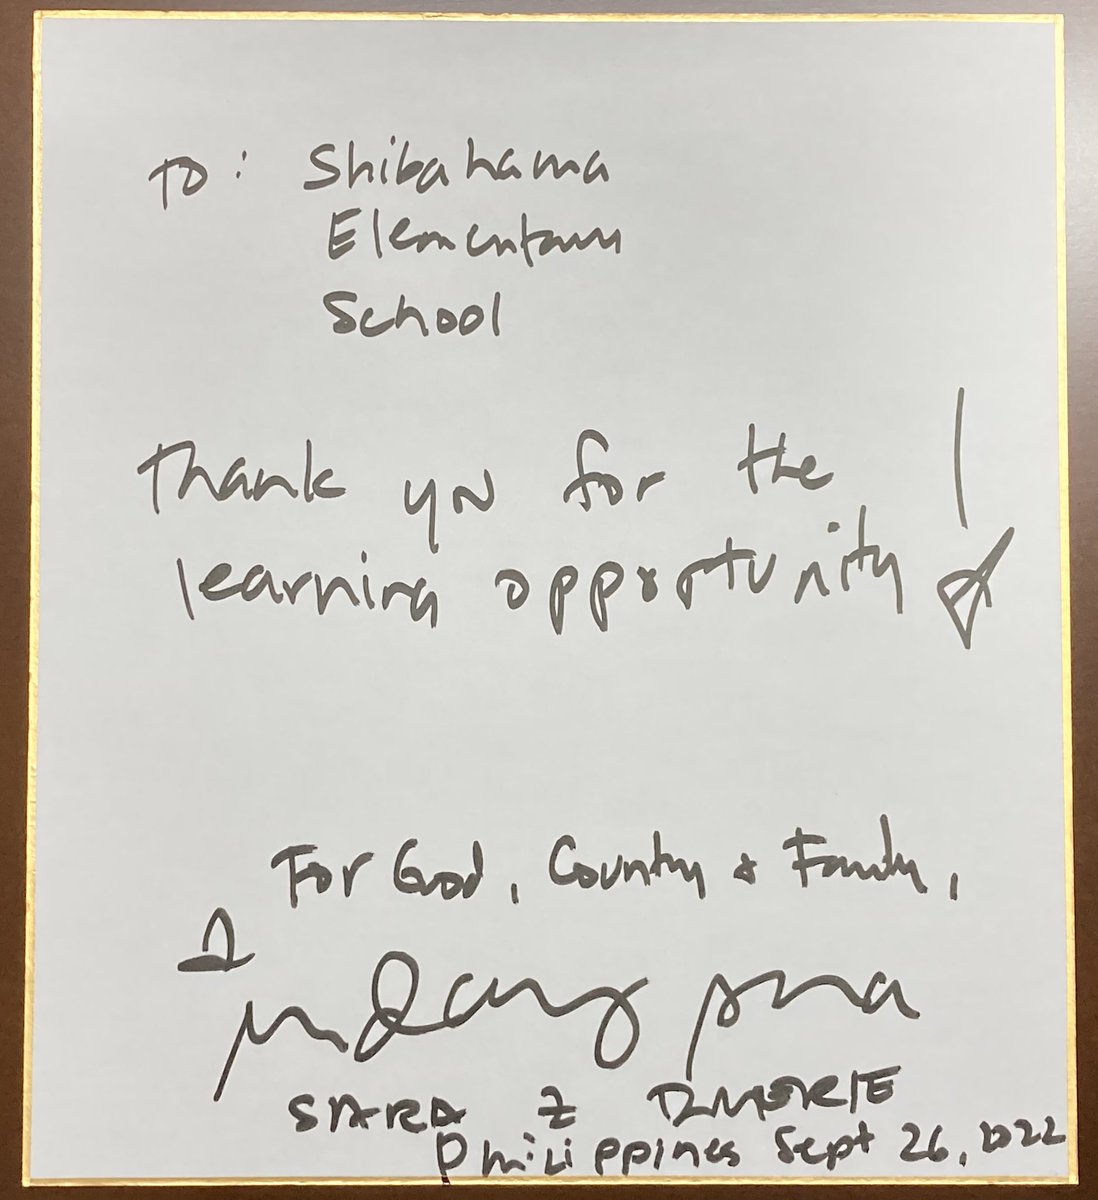 To: Shibahama
Elementary
School
Thank you for the
learning opportunity!
For God, Country & Family,
SARA Z DUTERTE
Philippines Sept 26, 2022